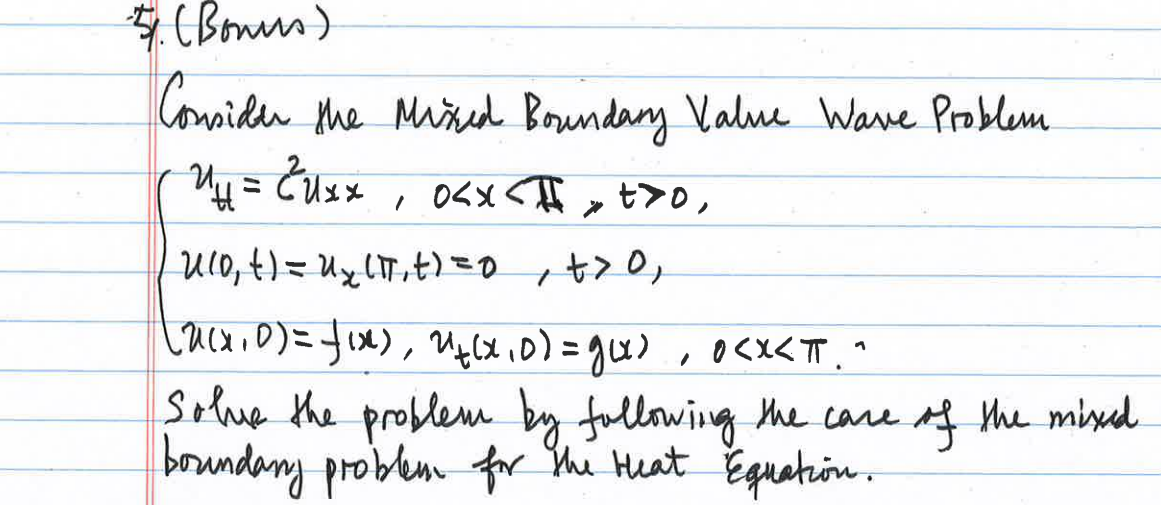 5/. (Bonus)
Consider the Mixed Boundary Value Wave Problem
u_tt = c²u_xx , 0<x<π , t>0,
u(0,t) = u_x(π,t) = 0 , t>0,
u(x,0) = f(x), u_t(x,0) = g(x) , 0<x<π.
Solve the problem by following the case of the mixed
boundary problem for the Heat Equation.